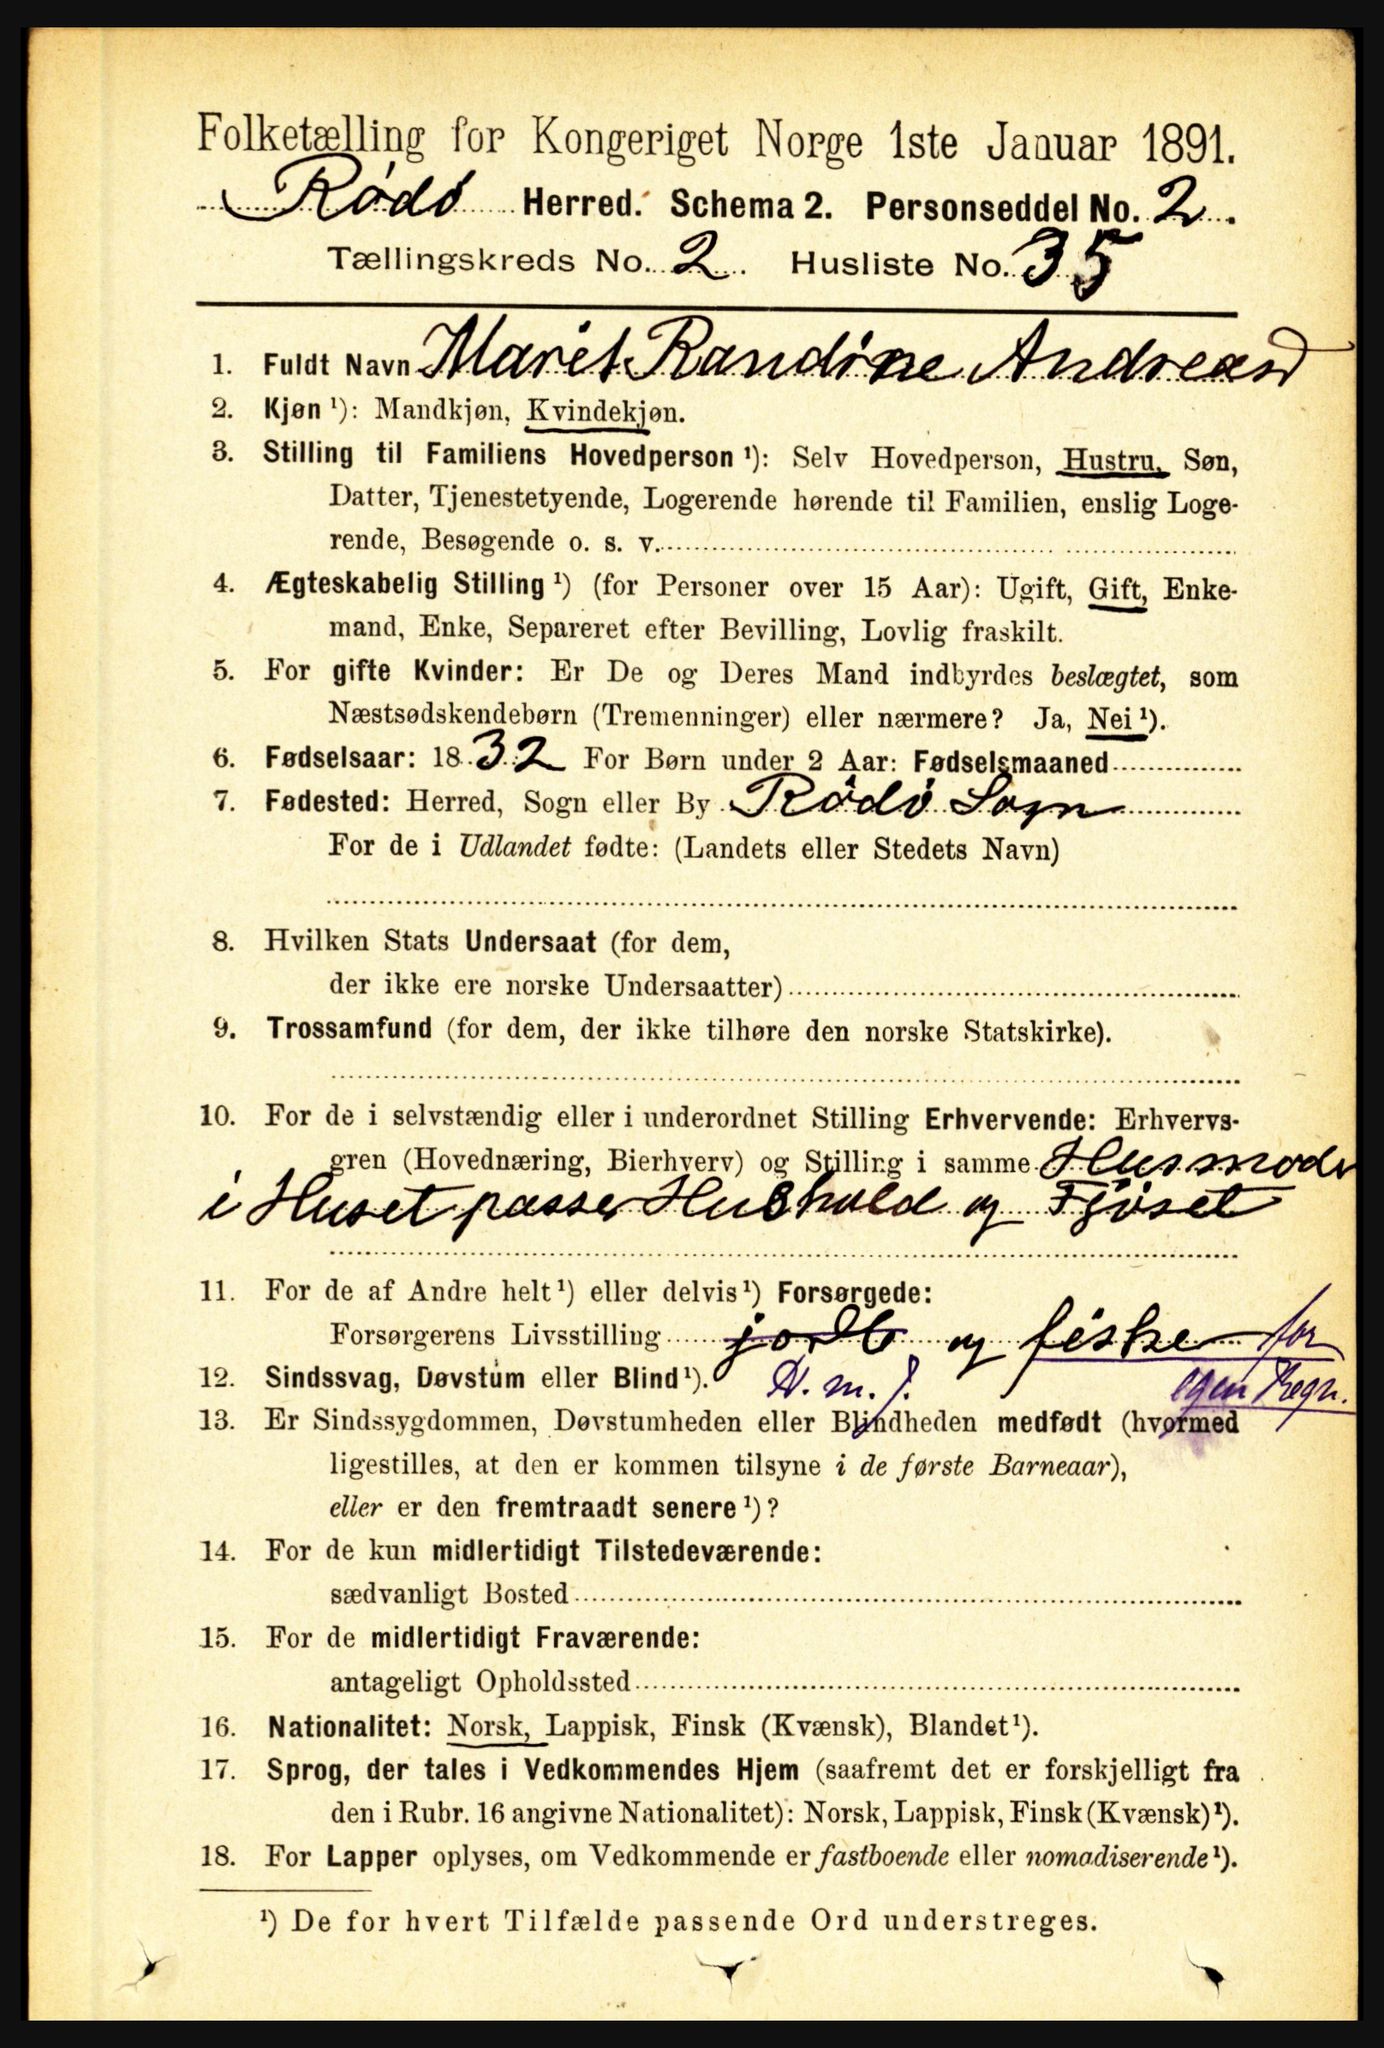 Folketælling for Kongeriget Norge 1ste Januar 1891.
Rødø Herred. Schema 2. Personseddel No. 2.
Tællingskreds No. 2. Husliste No. 35
1. Fuldt Navn Marit Randine Andreasd
2. Kjøn ¹): Mandkjøn, Kvindekjøn.
3. Stilling til Familiens Hovedperson ¹): Selv Hovedperson, Hustru, Søn,
Datter, Tjenestetyende, Logerende hørende til Familien, enslig Loge-
rende, Besøgende o. s. v.
4. Ægteskabelig Stilling ¹) (for Personer over 15 Aar): Ugift, Gift, Enke-
mand, Enke, Separeret efter Bevilling, Lovlig fraskilt.
5. For gifte Kvinder: Er De og Deres Mand indbyrdes beslægtet, som
Næstsødskendebørn (Tremenninger) eller nærmere? Ja, Nei ¹).
6. Fødselsaar: 1832 For Børn under 2 Aar: Fødselsmaaned
7. Fødested: Herred, Sogn eller By Rødø Sogn
For de i Udlandet fødte: (Landets eller Stedets Navn)
8. Hvilken Stats Undersaat (for dem,
der ikke ere norske Undersaatter)
9. Trossamfund (for dem, der ikke tilhøre den norske Statskirke).
10. For de i selvstændig eller i underordnet Stilling Erhvervende: Erhvervs-
gren (Hovednæring, Bierhverv) og Stilling i samme Husmoder
i Huset passer Hushold og Fjøset
11. For de af Andre helt ¹) eller delvis ¹) Forsørgede:
Forsørgerens Livsstilling og fiske for
12. Sindssvag, Døvstum eller Blind ¹). H. m. j. egen Regn.
13. Er Sindssygdommen, Døvstumheden eller Blindheden medfødt (hvormed
ligestilles, at den er kommen tilsyne i de første Barneaar),
eller er den fremtraadt senere ¹)?
14. For de kun midlertidigt Tilstedeværende:
sædvanligt Bosted
15. For de midlertidigt Fraværende:
antageligt Opholdssted
16. Nationalitet: Norsk, Lappisk, Finsk (Kvænsk), Blandet ¹).
17. Sprog, der tales i Vedkommendes Hjem (saafremt det er forskjelligt fra
den i Rubr. 16 angivne Nationalitet): Norsk, Lappisk, Finsk (Kvænsk) ¹).
18. For Lapper oplyses, om Vedkommende er fastboende eller nomadiserende ¹).
¹) De for hvert Tilfælde passende Ord understreges.